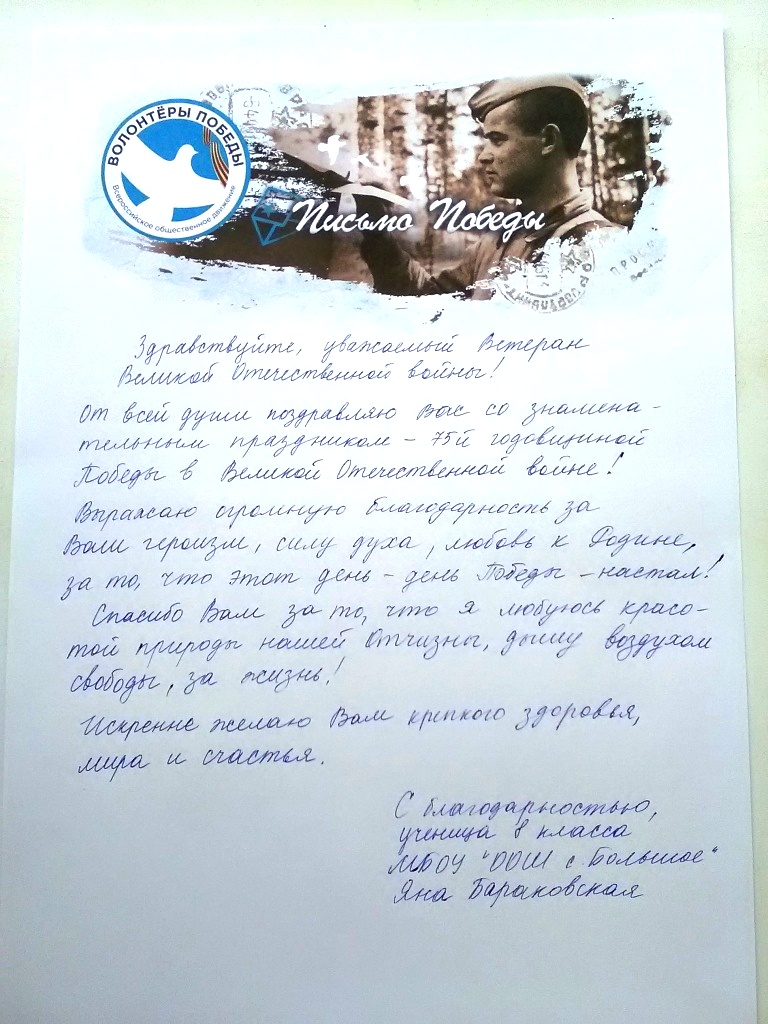 ВОЛОНТЁРЫ ПОБЕДЫ
Всероссийское общественное движение
Письмо Победы
Здравствуйте, уважаемый Ветеран
Великой Отечественной войны!
От всей души поздравляю Вас со знамена-
тельным праздником – 75й годовщиной
Победы в Великой Отечественной войне!
Выражаю огромную благодарность за
Ваш героизм, силу духа, любовь к Родине,
за то, что этот день – день Победы – настал!
Спасибо Вам за то, что я любуюсь красо-
той природы нашей Отчизны, дышу воздухом
свободы, за жизнь!
Искренне желаю Вам крепкого здоровья,
мира и счастья.
С благодарностью,
ученица 8 класса
МБОУ "ООШ с. Большое"
Яна Бараковская